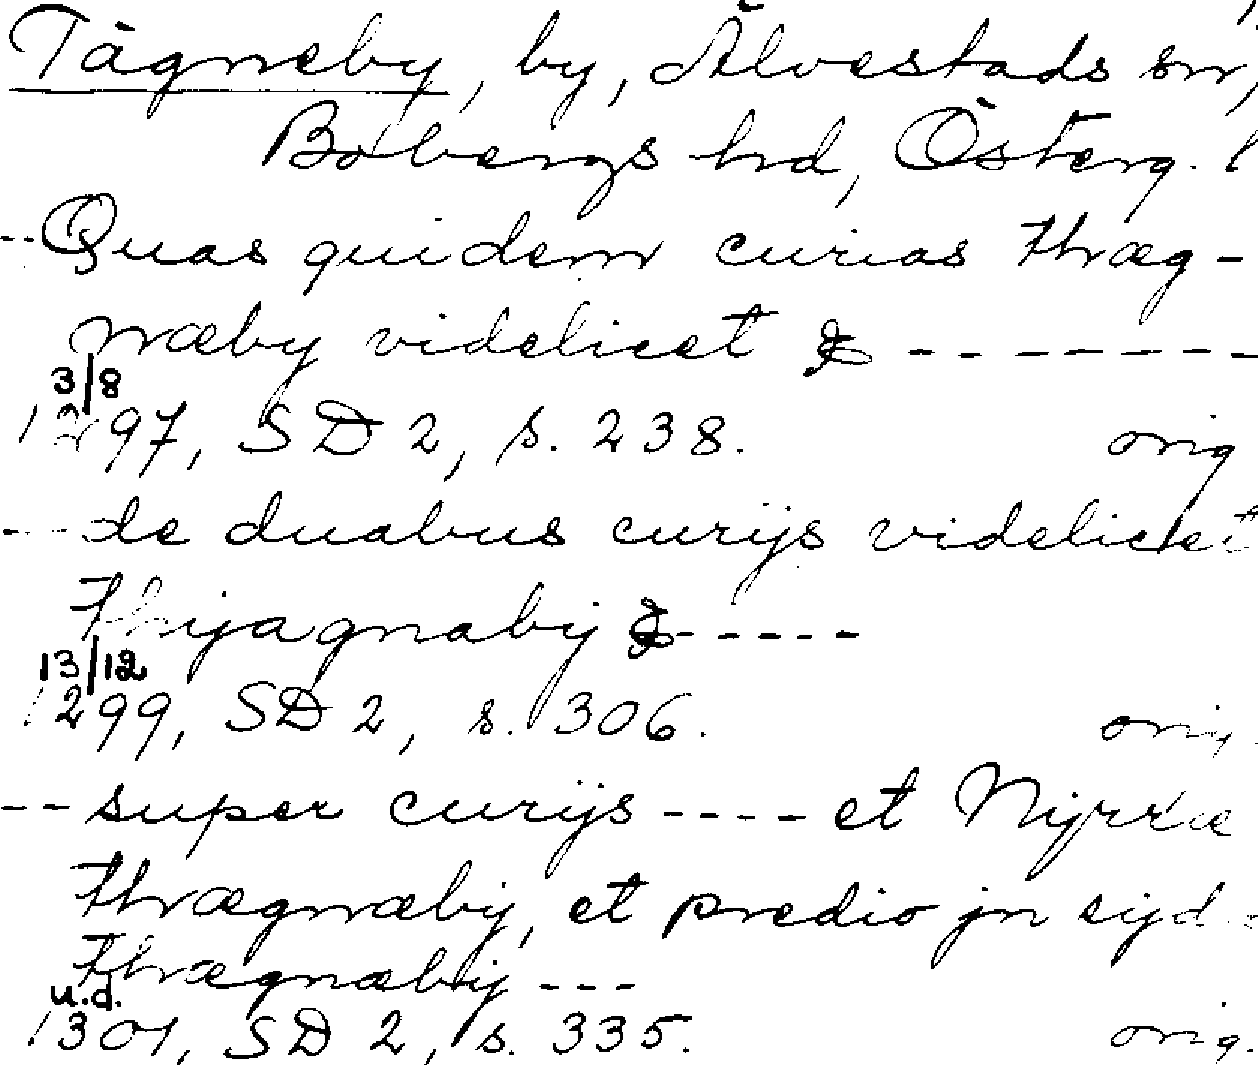 Tågneby, by, Älvestads sn,
Bobergs hd, Österg. l
-- Quas quidem curias thræg-
næby videlicet & --------
3/8
1297, SD 2, s. 238. orig
--- de duabus curijs videlicet
thyagnaby & -----
13/12
1299, SD 2, s. 306. orig.
-- super curijs ---- et Nyrræ
thrægnæby, et predio jn syd-
thrægnæby ---
u.d.
1301, SD 2, s. 335. orig.